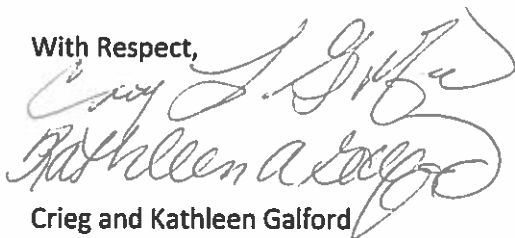 With Respect,
Crieg L. Galford
Kathleen A Galford
Crieg and Kathleen Galford